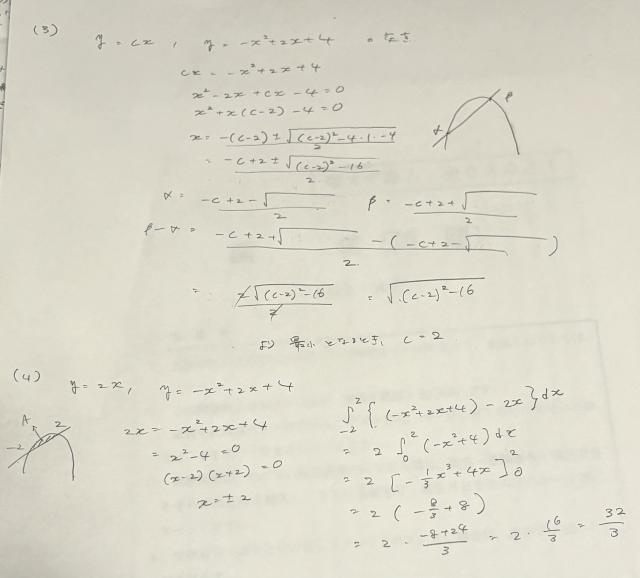 (3)
y = cx , y = -x²+2x+4
cx = -x²+2x+4
x²-2x+cx-4=0
x²+x(c-2)-4=0
x = (-(c-2)±√((c-2)²-4・1・-4))/2
= (-c+2±√((c-2)²-16))/2
α β
α = (-c+2-√ )/2 β = (-c+2+√ )/2
β-α = (-c+2+√ -(-c+2-√ ))/2
= 2√((c-2)²-16)/2 = √((c-2)²-16)
より 最小 c=2
(4)
y=2x, y=-x²+2x+4
A -2 2
2x=-x²+2x+4
= x²-4=0
(x-2)(x+2)=0
x=±2
∫_{-2}^{2} {(-x²+2x+4)-2x}dx
= 2∫_{0}^{2} (-x²+4)dx
= 2[-1/3x³+4x]_{0}^{2}
= 2(-8/3+8)
= 2・(-8+24)/3 = 2・16/3 = 32/3